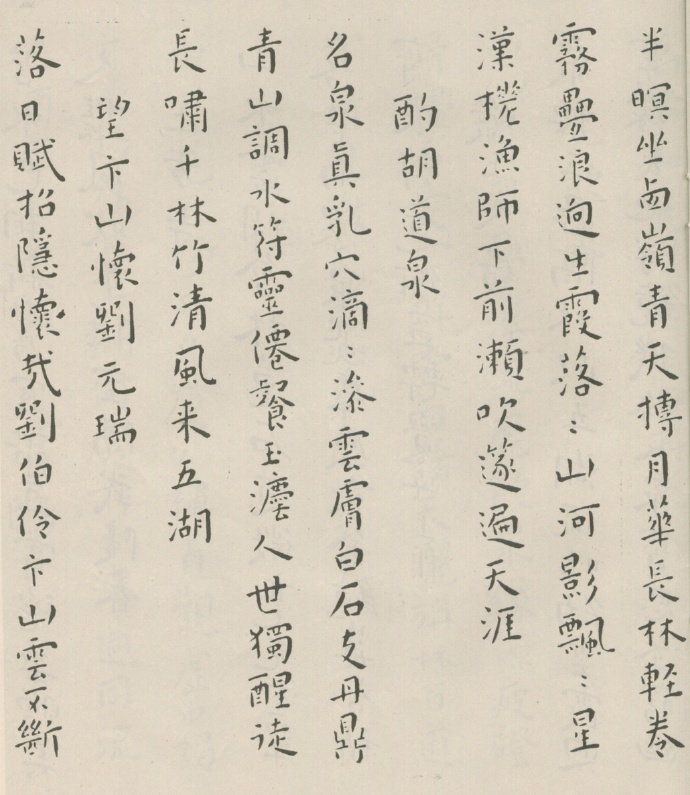 半暝坐面嶺青天摶月華長林輕卷
霧疊浪逈生霞落〻山河影飄〻星
漢槎漁師下前瀨吹篴遍天涯
酌胡道泉
名泉真乳穴滴〻滲雲膚白石支丹鼎
青山調水符靈僊餐玉瀣人世獨醒徒
長嘯千林竹清風来五湖
望卞山懷劉元瑞
落日賦招隱懷哉劉伯伶卞山雲不斷